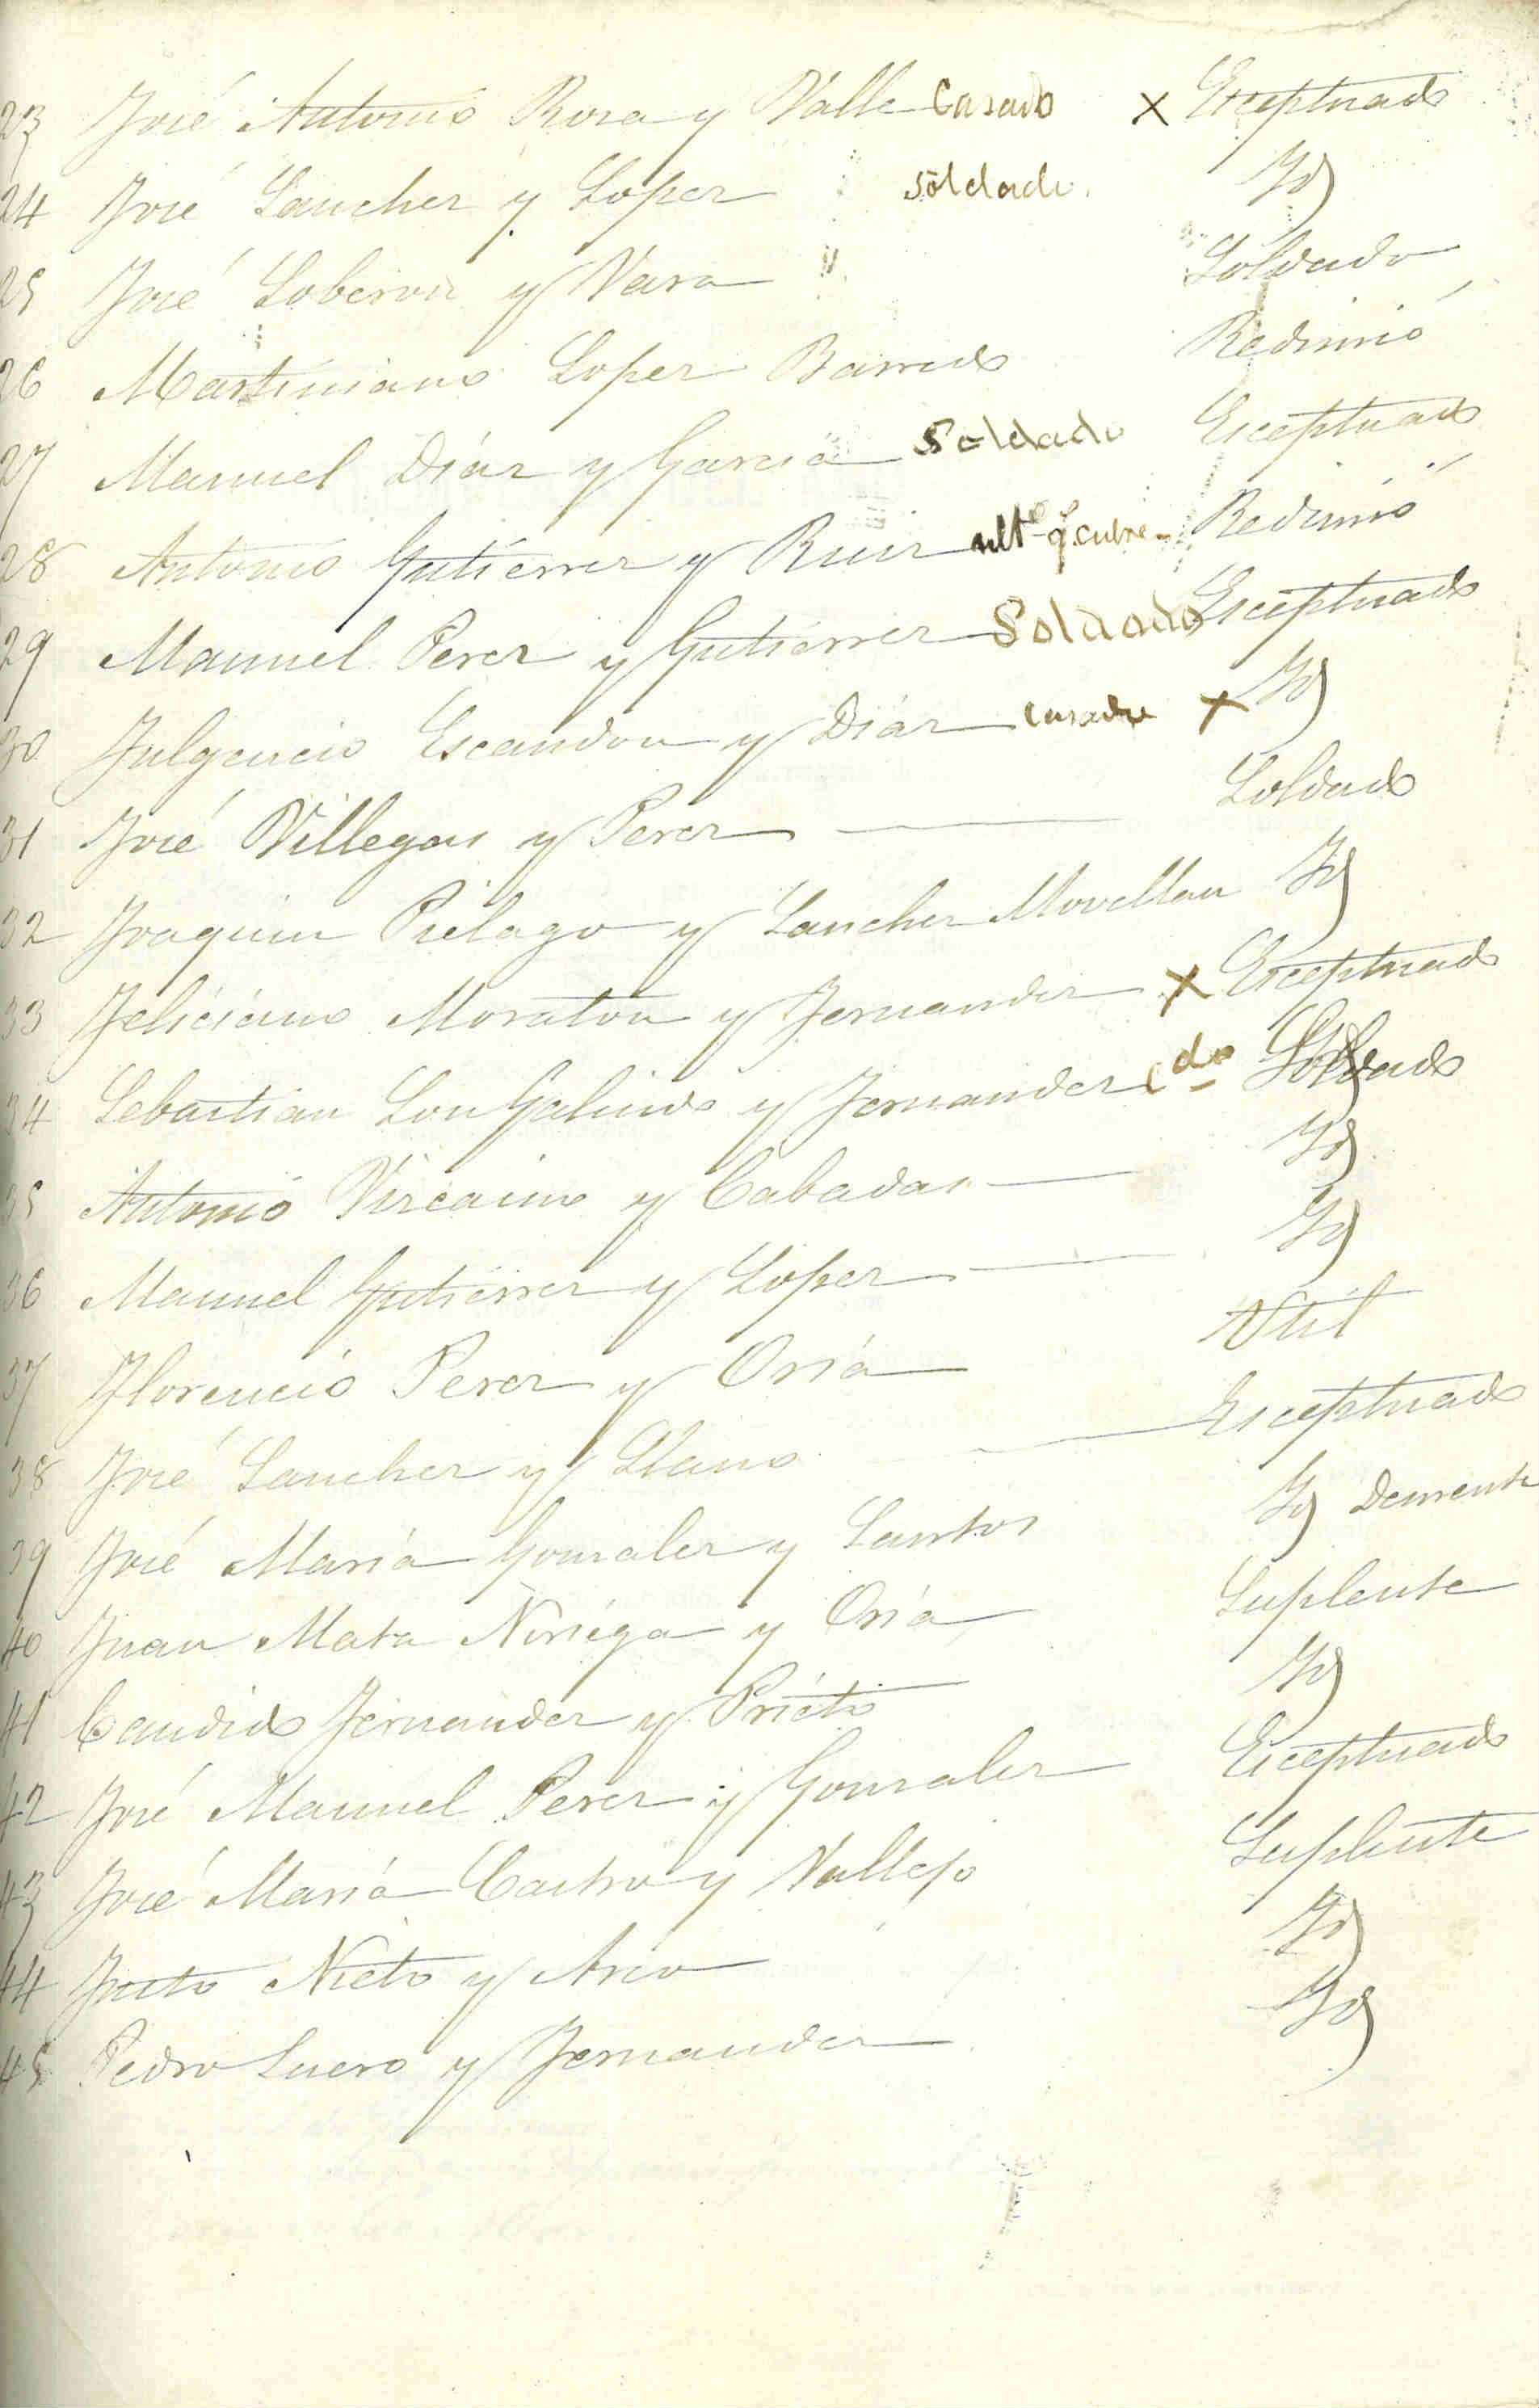 23 José Antonio Rosa y Valle Casado x Exceptuado
24 José Sanchez y Lopez soldado. Yd
25 José Soberon y Vara " Soldado
26 Martiniano Lopez Barreda Redimió
27 Manuel Diáz y Garcia Soldado Esceptuado
28 Antonio Gutierrez y Ruiz ultº q. cubre Redimió
29 Manuel Perez y Gutierrez Soldado Esceptuado
30 Fulgencio Escandon y Diáz casado x Yd
31 José Villegas y Perez Soldado
32 Joaquin Pielago y Sanchez Movellan Yd
33 Feliciano Moraton y Fernandez x Exceptuado
34 Sebastian San Galindo y Fernandez cdo Soldado
35 Antonio Vizcaino y Cabadas Yd
36 Manuel Gutierrez y Lopez Yd
37 Florencio Perez y Oria Util
38 José Sanchez y Llano Esceptuado
39 José Maria Gonzalez y Santos Yd Demente
40 Juan Mata Noriega y Oria Suplente
41 Candido Fernandez y Prieto Yd
42 José Manuel Perez y Gonzalez Esceptuado
43 José Maria Castro y Vallejo Suplente
44 Justo Nieto y Yd
45 Pedro Suero y Fernandez Yd